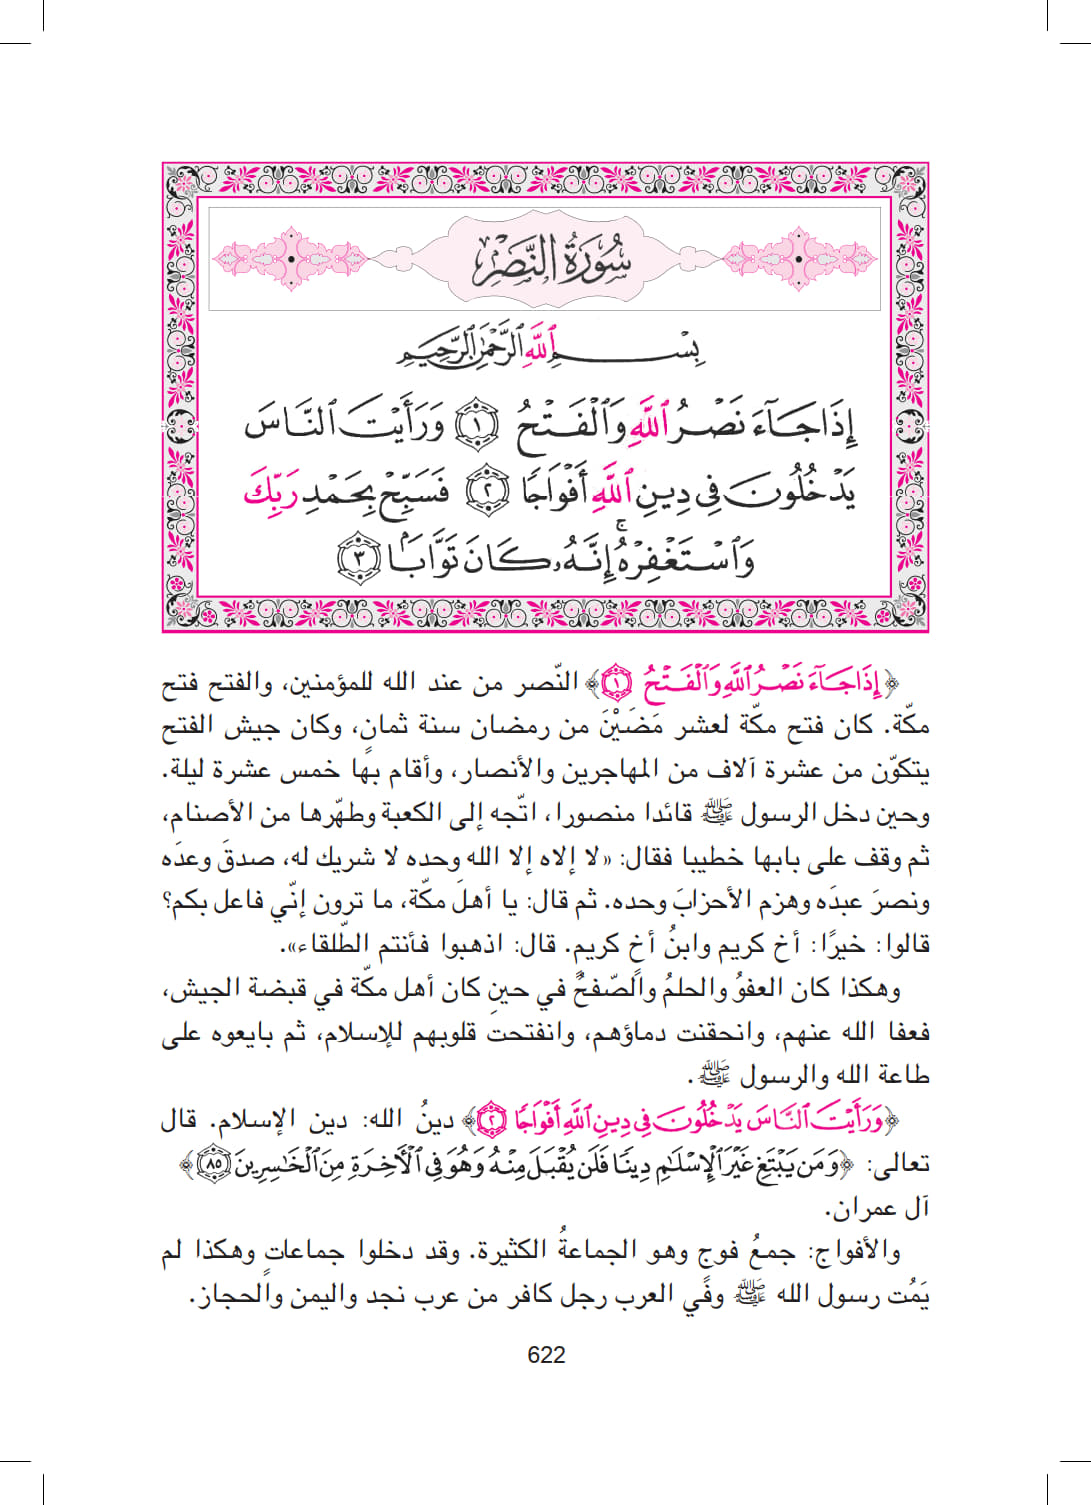 سُورَةُ النَّصْرِ
بِسْمِ اللَّهِ الرَّحْمَٰنِ الرَّحِيمِ
إِذَا جَآءَ نَصْرُ ٱللَّهِ وَٱلْفَتْحُ ١ وَرَأَيْتَ ٱلنَّاسَ
يَدْخُلُونَ فِى دِينِ ٱللَّهِ أَفْوَاجًا ٢ فَسَبِّحْ بِحَمْدِ رَبِّكَ
وَٱسْتَغْفِرْهُ ۚ إِنَّهُۥ كَانَ تَوَّابًۢا ٣
﴿إِذَا جَآءَ نَصْرُ ٱللَّهِ وَٱلْفَتْحُ ١﴾ النّصر من عند الله للمؤمنين، والفتح فتح
مكّة. كان فتح مكّة لعشر مَضَيْنَ من رمضان سنة ثمانٍ، وكان جيش الفتح
يتكوّن من عشرة آلاف من المهاجرين والأنصار، وأقام بها خمس عشرة ليلة.
وحين دخل الرسول ﷺ قائدا منصورا، اتّجه إلى الكعبة وطهّرها من الأصنام،
ثم وقف على بابها خطيبا فقال: «لا إلاه إلا الله وحده لا شريك له، صدقَ وعدَه
ونصرَ عبدَه وهزم الأحزابَ وحده. ثم قال: يا أهلَ مكّة، ما ترون إنّي فاعل بكم؟
قالوا: خيرًا: أخ كريم وابنُ أخٍ كريمٍ. قال: اذهبوا فأنتم الطّلقاء».
وهكذا كان العفوُ والحلمُ والصّفحُ في حينِ كان أهل مكّة في قبضة الجيش،
فعفا الله عنهم، وانحقنت دماؤهم، وانفتحت قلوبهم للإسلام، ثم بايعوه على
طاعة الله والرسول ﷺ.
﴿وَرَأَيْتَ ٱلنَّاسَ يَدْخُلُونَ فِى دِينِ ٱللَّهِ أَفْوَاجًا ٢﴾ دينُ الله: دين الإسلام. قال
تعالى: ﴿وَمَن يَبْتَغِ غَيْرَ ٱلْإِسْلَٰمِ دِينًا فَلَن يُقْبَلَ مِنْهُ وَهُوَ فِى ٱلْأَخِرَةِ مِنَ ٱلْخَٰسِرِينَ ٨٥﴾
آل عمران.
والأفواج: جمعُ فوجٍ وهو الجماعةُ الكثيرة. وقد دخلوا جماعاتٍ وهكذا لم
يَمُت رسول الله ﷺ وفي العرب رجل كافر من عرب نجد واليمن والحجاز.
622